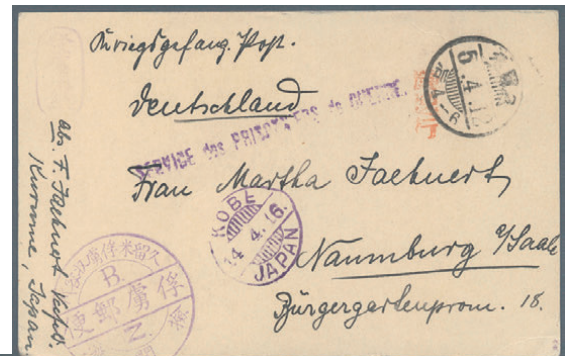 Kriegsgefang. Post.
Deutschland
SERVICE des PRISONNIERS de GUERRE.
5.4.12
Frau Martha Jaehnert
KOBE
14.4.16.
JAPAN
Naumburg a/Saale
Bürgergartenprom. 18.
abs. F. Jaehnert
Kurume, Japan
俘虜郵便